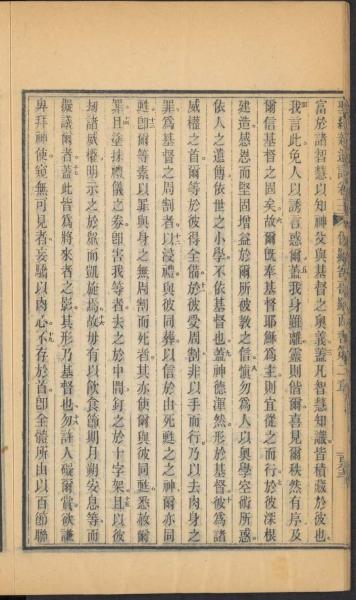 富於諸智慧以知神父與基督之奧義蓋凡智慧知識皆積藏於彼也
我言此免人以誘言惑爾蓋我身雖離靈則偕爾喜見爾秩然有序及
爾信基督之固矣故爾既奉基督耶穌為主則宜從之而行於彼深根
建造感恩而堅固增益於爾所彼教之信慎勿為人以奧學空術所惑
依人之遺傳依世之小學不依基督也蓋神德渾然形於基督彼為諸
威權之首爾等於彼得全備於彼受周割非以手而行乃以去肉身之
罪為基督之周割者以浸禮與彼同葬以信於由死甦之之神爾亦同
甦即爾等素以罪與身之無周割而死者其亦使爾與彼同甦悉赦爾
罪且塗抹禮儀之券即害我等者去之於中間釘之於十字架且以彼
刼諸威權明示之於眾而凱旋焉故毋有以飲食節期月朔安息等而
擬議爾者蓋此皆為將來者之影其形乃基督也勿許人礙爾賞欲謙
卑拜神使窺無可見者妄驕以肉心不存於首即全體所由以百節聯